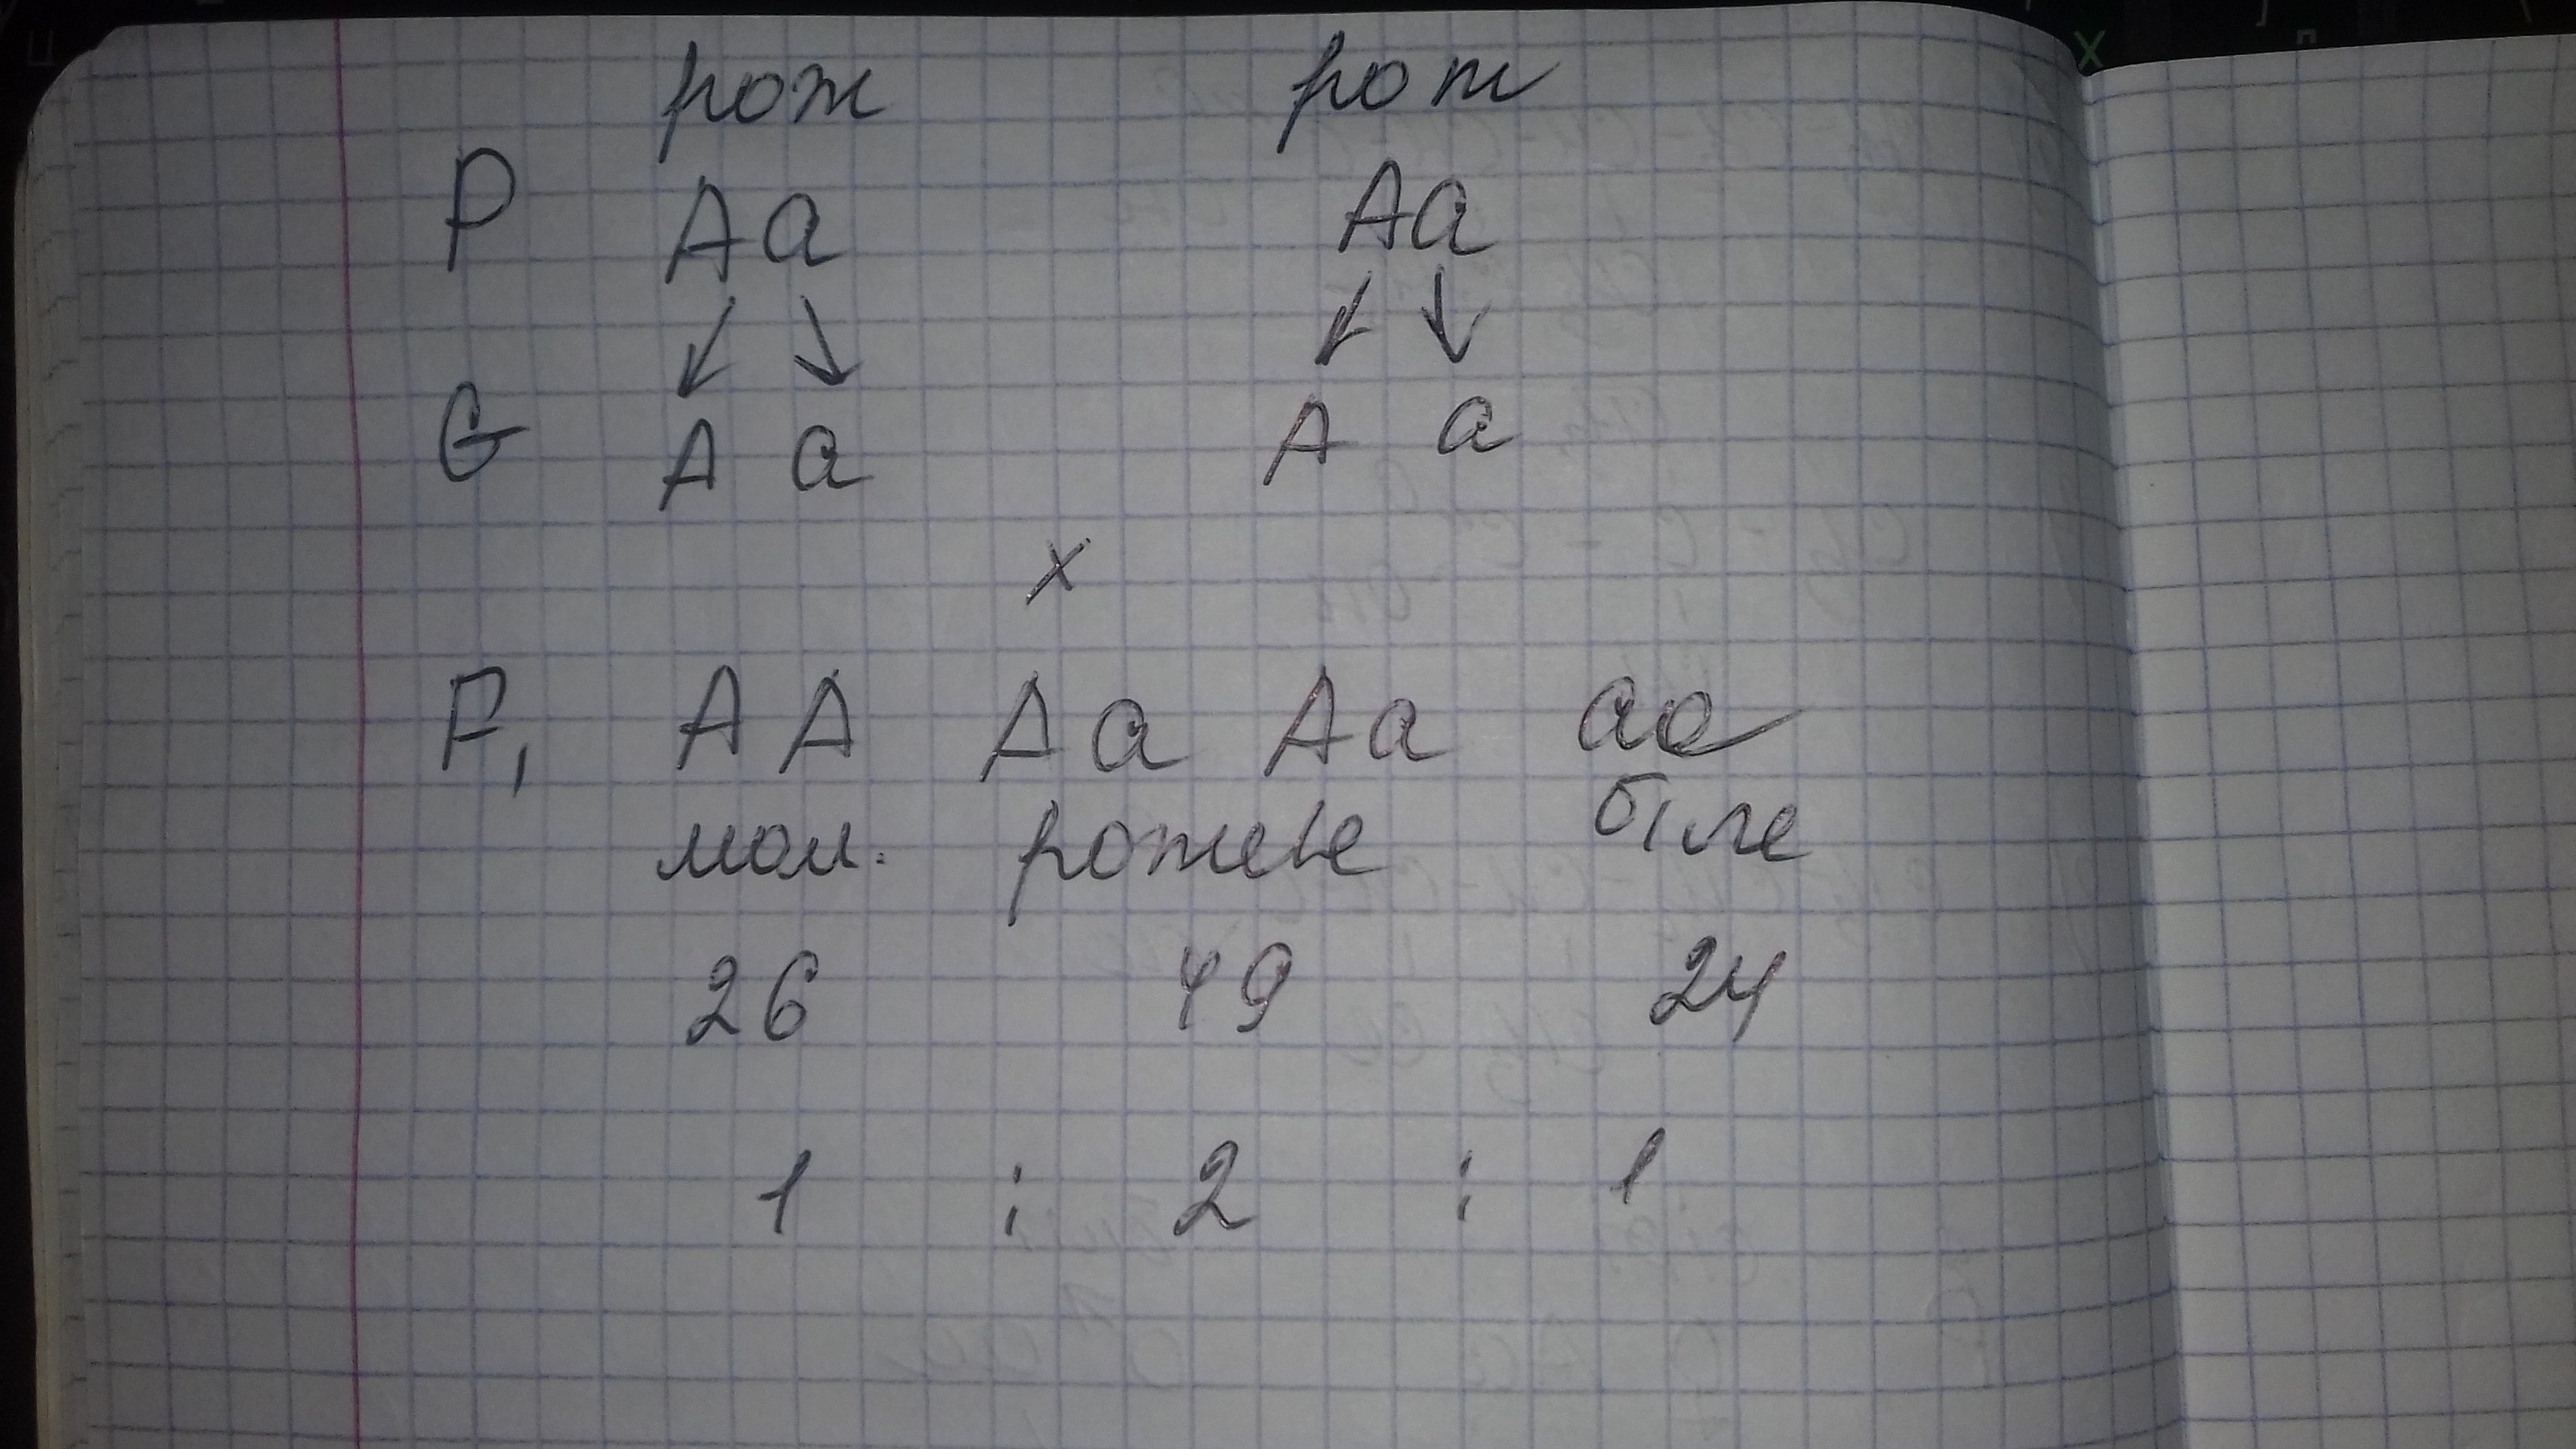 рож рож
P Aa Aa
G A a A a
x
F₁ A A A a A a aa
рожеве біле
26 49 24
1 : 2 : 1